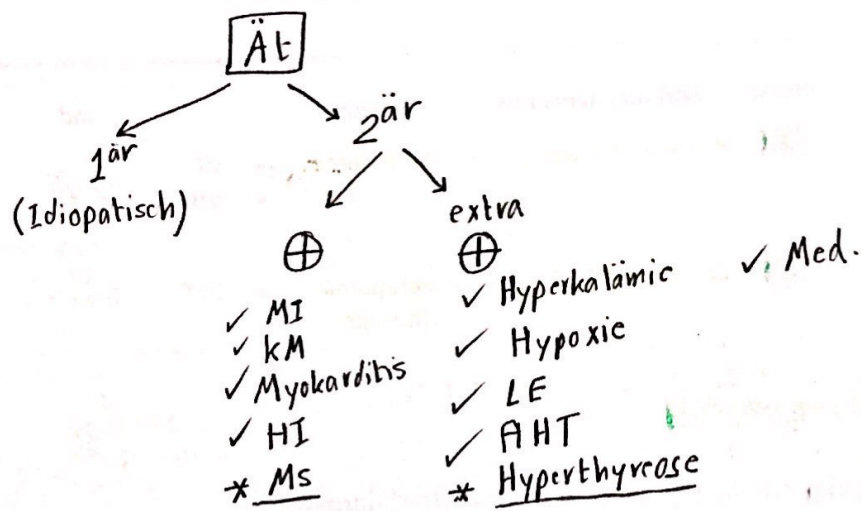 Ät
1är
2är
(Idiopatisch)
extra
⊕
⊕
✓ MI
✓ kM
✓ Myokarditis
✓ HI
* Ms
✓ Hyperkalämic
✓ Hypoxie
✓ LE
✓ AHT
* Hyperthyreose
✓ Med.